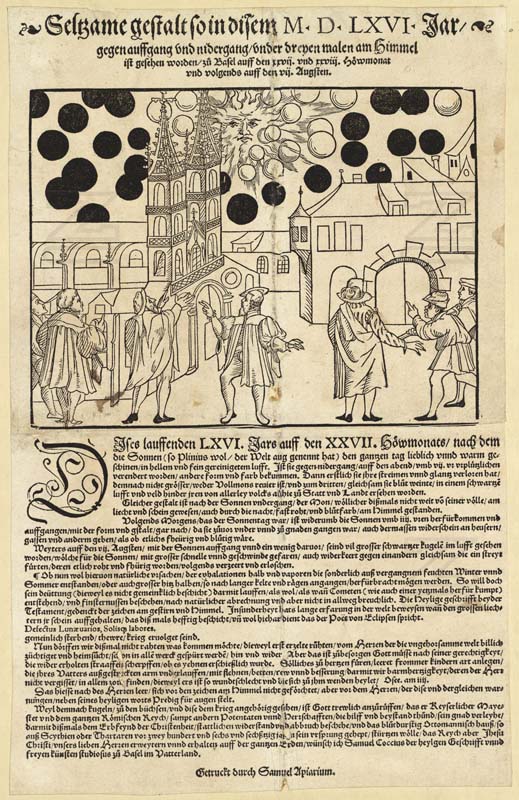 Seltzame gestalt so in disem M. D. LXVI. Jar/
gegen auffgang vnd nidergang/vnder dreyen malen am Himmel
ist gesehen worden/zů Basel auff den xxvij. vnd xxviij. Höwmonat
vnd volgends auff den vij. Augsten.
DIses lauffenden LXVI. Jars auff den XXVII. Höwmonats/nach dem
die Sonnen (so Plinius wol/der Welt aug genennt hat) den gantzen tag lieblich vnnd warm ge-
schinen/in hellen vnd fein gereinigetem lufft. Ist sie gegen nidergang/auff den abend/vmb vij. vr vrplützlichen
verendert worden/andere form vnd farb bekummen. Dann erstlich sie ihre streimen vnnd glantz verloren hat/
demnach nicht grösser/weder Vollmones reuier ist/vnd zum dritten/gleichsam sie blůt weinte/in einem schwartzē
lufft vnd veld hinder jren von allerley volcks alhie zů Statt vnd Landt ersehen worden.
Gleicher gestalt ist nach der Sonnen vndergang/der Mon/wöllicher dißmals nicht weit vō seiner völle/am
liecht vnd schein gewesen/auch durch die nacht/fast roht/vnd blůtfarb/am Himmel gestanden.
Volgends Morgens/das der Sonnentag war/ist widerumb die Sonnen vmb iiij. vren herfür kommen vnd
auffgangen/mit der form vnd gestalt/gar nach/da sie zůuor vnder vnnd zů gnaden gangen war/auch dermassen widerschein an heüsern/
gassen vnd anderen geben/als ob etlichs fheürig vnd blůtig wäre.
Weyters auff den vij. Augsten/mit der Sonnen auffgang vnnd ein wenig daruor/seind vil grosser schwartzer kugelē im lufft gesehen
worden/wölche für die Sonnen/mit grosser schnelle vnnd geschwinde gefaren/auch widerkeert gegen einandern gleichsam die ein streyt
fürten/deren etlich roht vnd fhürig worden/volgends verzeert vnd erloschen.
¶ Ob nun wol hieruon natürlichē vrsachen/der exhalationen halb vnd vaporen die sonderlich auß vergangnem feuchten Winter vnnd
Sommer entstanden/oder auch grosser hin halben/so nach langer kelte vnd rägen angangen/herfür bracht mögen werden. So will doch
sein deüttung (dieweyl es nicht gemeinklich beschicht) darmit lauffen/als wol/als von Cometen (wie auch einer yezmals herfür kumpt)
entstehend/vnd finsternussen beschehen/nach natürlicher abrechnung vnd aber nicht in allweg breuchlich. Die Heylige geschrifft beyder
Testament/gedenckt der zeichen am gestirn vnd Himmel. In sunderheyt hats lange erfarung in der welt beweysen wan den grossen liech-
tern je schein auffgehalten/das diß mals hefftig beschicht/vñ wol hiehar dient das der Poët von Eclipsen spricht.
Defectus Lunæ uarios, Solisq́; labores,
gemeinlich sterbend/theure/krieg eruolget seind.
Nun dörffen wir dißmal nicht rahten was kommen möchte/dieweyl erst erzelte růthen/vom Herren der die vngehorsamme welt billich
züchtiget vnd heimsůcht/so/on in alle wege gespürt werdē/hin vnd wider. Aber das ist zůbesorgen Gott müsse nach seiner gerechtigkeyt/
die wider erholten straaffē scherpffen/ob es yehnen erschießlich wurde. Söllichs zů hertzen füren/leeret frommer kindern art anlegen/
die ihres Vatters außgestrecktē arm vnderlauffen/mit flehnen/betten/rew vnnd besserung/darmit wir barmhertzigkeyt/deren der Herr
nicht vergisset/in allem zorn/finden/dieweyl er ist so wunderlich vnd liecht so zů ihm wenden heylet/ Osee. am iiij.
Das hiesse nach des Herren leer/sich vor den zeichen am Himmel nicht geförchtet/aber vor dem Herren/der diß vnd dergleichen war-
nungen/neben seines heyligen worts Predig für augen stelt.
Weyl demnach kugelen/zů den büchsen/vnd diß zů dem krieg angehörig gesehen/ist Gott trewlich anzůrüffen/das er Keyserlicher Mayes-
stet vnd dem gantzen Römischen Reych/sampt andern Potentaten vnnd Herrschafften/die hilff vnd beystand thünd/sein gnad verleyhe/
darmit dißmals dem Erbfeynd der Christenheyt/starcklichen widerstand vnd abbruch beschehe/vnd das blůtdurstig Ottomannisch hauß/so
auß Scythien oder Tartaren vor zwey hundert vnd sechs vnd sechtzig jar/sein vrsprung gehept/stürtzen wölle/das Reych aber Jhesu
Christi/vnsers lieben Herren erweytern vnnd erhalten auff der gantzen Erden/wünsch ich Samuel Coccius der heyligen Geschrifft vnnd
freyen künsten studiosus zů Basel im Vatterland.
Getruckt durch Samuel Apiarium.